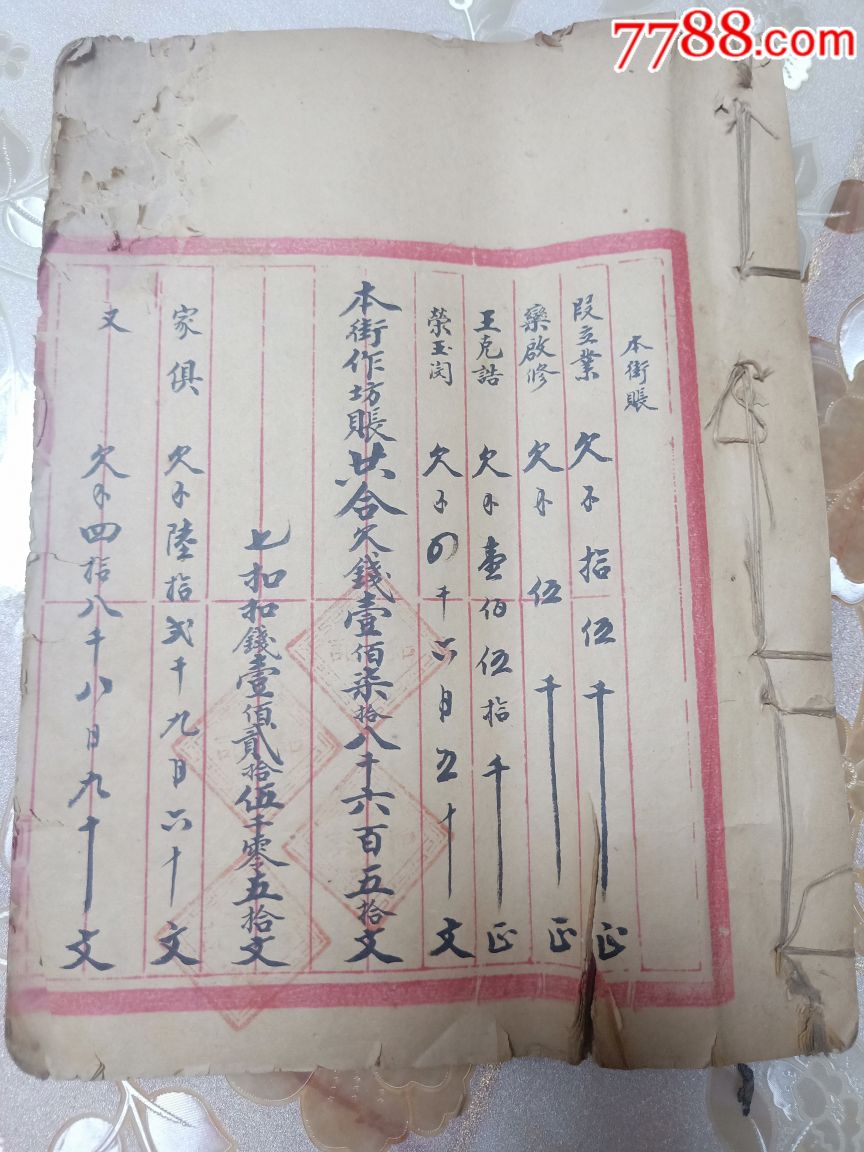 7788.com
本街賬
段立業 欠予 拾伍千 正
藥啟修 欠予 伍千 正
王克誥 欠予 壹佰伍拾千 正
榮玉閔 欠予 四千六百五十 文
本街作坊賬共合欠錢壹佰柒拾八千六百五拾文
七扣扣錢壹佰貳拾伍千零五拾文
家俱 欠予 陸拾弍千九百六十 文
文 欠予 四拾八千八百九十 文